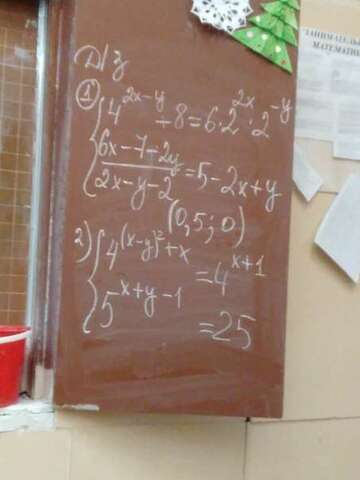 Д/З
1) { 4^{2x-y} + 8 = 6·2^{2x}·2^{-y}
(6x-7-2y)/(2x-y-2) = 5-2x+y
(0,5; 0)
2) { 4^{(x-y)^2+x} = 4^{x+1}
5^{x+y-1} = 25
ЗАНИМАТЕЛЬ
МАТЕМАТИ